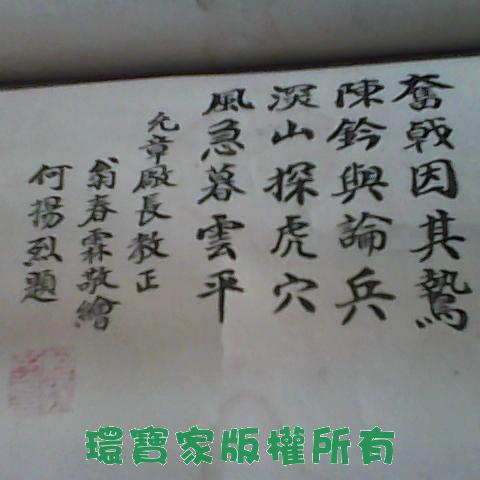 奮戟因其鷙
陳鈐與論兵
深山探虎穴
風急暮雲平
允章廠長教正
翁春霖敬繪
何揚烈題
環寶家版權所有